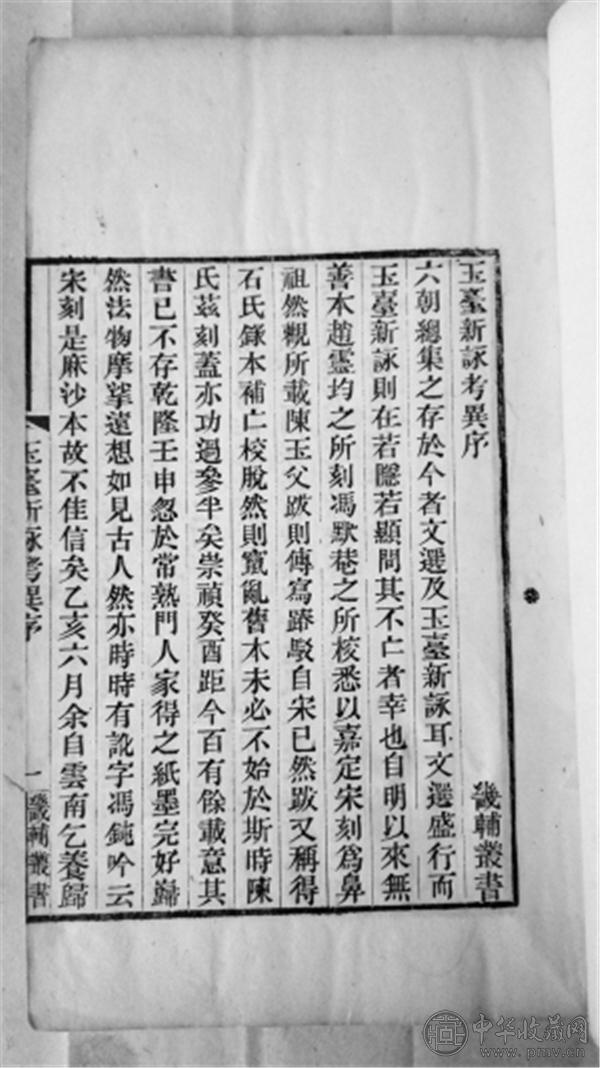 玉臺新詠考異序 畿輔叢書
六朝總集之存於今者文選及玉臺新詠耳文選盛行而
玉臺新詠則在若隱若顯間其不亡者幸也自明以來無
善本趙靈均之所刻馮默菴之所校悉以嘉定宋刻為鼻
祖然觀所載陳玉父跋則傳寫踳駁自宋已然跋又稱得
石氏錄本補亡校脫然則竄亂舊本未必不始於斯時陳
氏茲刻蓋亦功過參半矣崇禎癸酉距今百有餘載意其
書已不存乾隆壬申忽於常熟門人家得之紙墨完好巋
然法物摩挲遠想如見古人然亦時時有訛字馮鈍吟云
宋刻是麻沙本故不佳信矣乙亥六月余自雲南乞養歸
玉臺新詠考異序 一 畿輔叢書
中华收藏网
www.pmv.cn